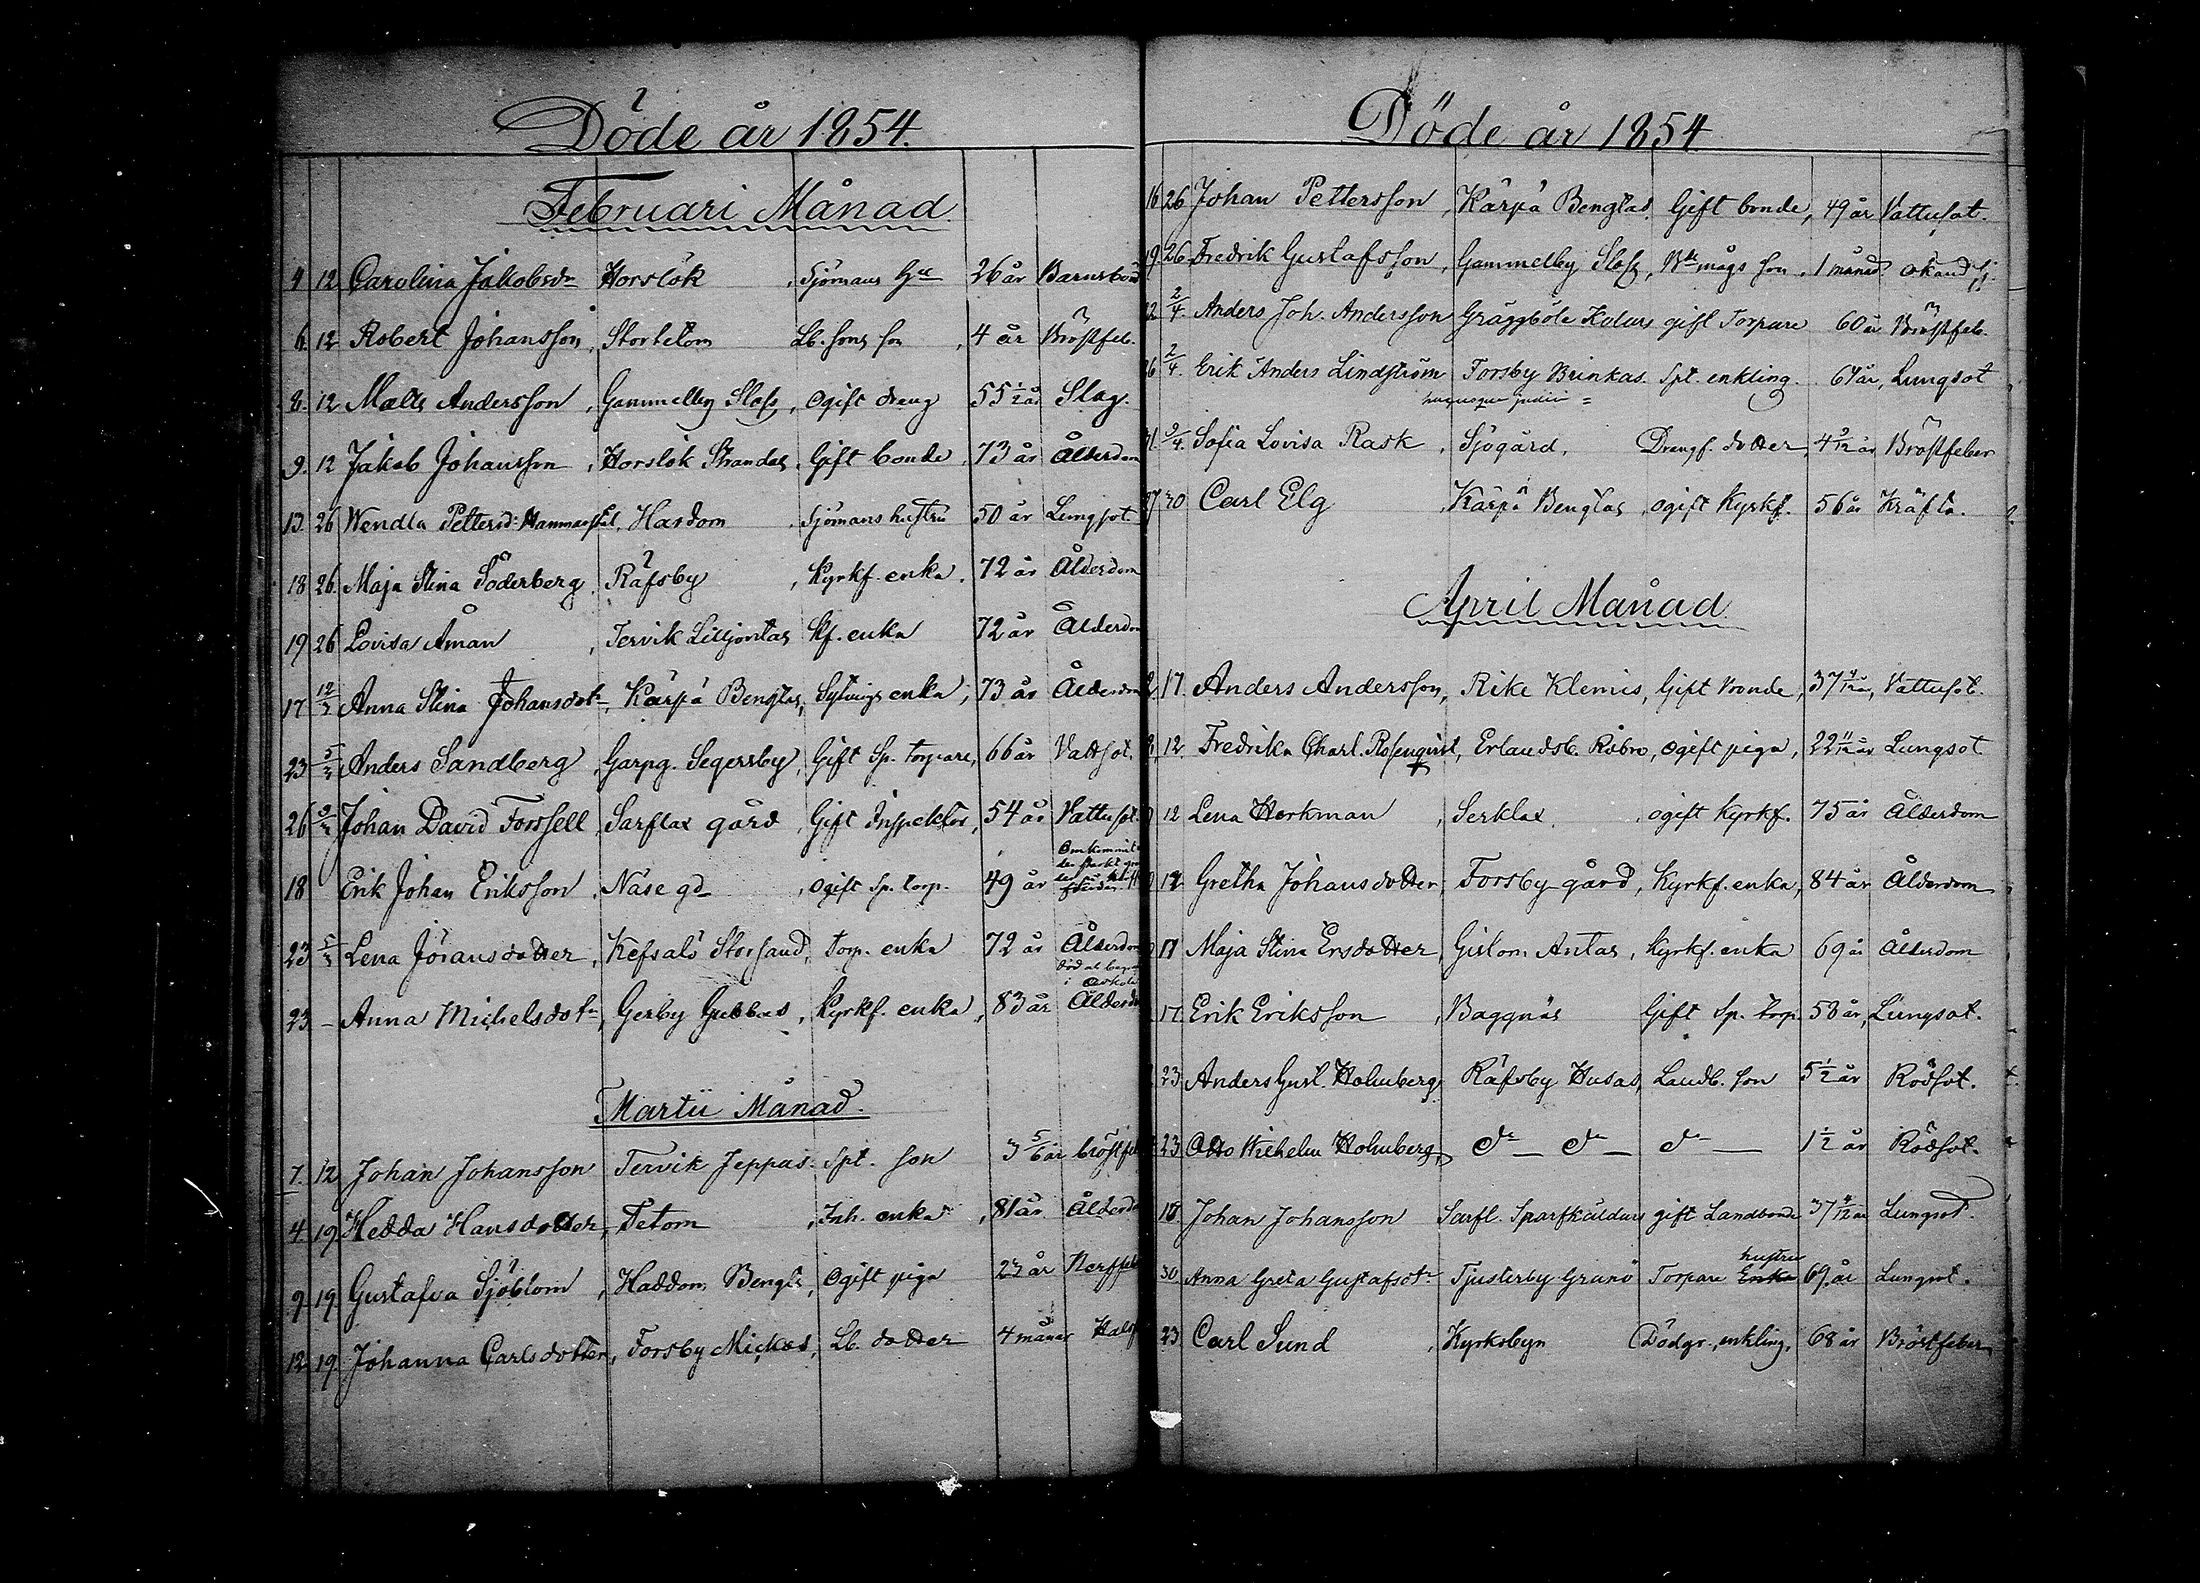 Döde år 1854.
Februari Månad
4 12 Carolina Jakobsd. Horslök, Sjömans Hu 26 år Barnsbörd
6. 12 Robert Johansson, Stortetom Lb. sons son, 4 år Bröstfeb.
8. 12 Matts Andersson, Gammelby Slafs, ogift dreng 55 1/2 år Slag.
9. 12 Jakob Johansson, Horslök Strandas, Gift bonde, 73 år Ålderdom
13. 26 Wendla Pettersd: Hammarstål, Hardom, Sjömans hustru 50 år Lungsot.
18 26. Maja Stina Söderberg, Räfsby, Kyrkf. enka. 72 år Ålderdom
19 26 Lovisa Åman, Tervik Lilljontas Kf. enka 72 år Ålderdom
17 12/3 Anna Stina Johansdotr, Kärpä Bengtas, Sytnings enka, 73 år Ålderdom
23 5/3 Anders Sandberg, Garpg. Segersby, Gift Sp. torpare, 66 år Vattsot.
26 5/3 Johan David Forssell, Sarflax gård, Gift Inspektor, 54 år Vattusot
18 Erik Johan Eriksson, Näse gd, ogift Sp. torp. 49 år Omkommit
23 5/3 Lena Jöransdotter, Kefsalö Storsand, torp. enka 72 år Ålderdom
23 – Anna Michelsdotr, Gerby Gubbas, Kyrkf. enka, 83 år Ålderdom
Martii Månad.
7. 12 Johan Johansson Tervik Jeppas. Spt. son 3 5/6 år bröstfeb
4. 19 Hedda Hansdotter, Tetom, Inh. enka, 81 år Ålderdom
9. 19. Gustafva Sjöblom, Haddom Bengts, Ogift piga 23 år Nerffeb
12 19. Johanna Carlsdotter, Forsby Mickas, Lb. dotter 4 månar Hals
Döde år 1854
16 26 Johan Pettersson, Kärpä Bengtas, Gift bonde, 49 år Vattusot.
19 26. Fredrik Gustafsson, Gammelby Slafs, Bde mågs son, 1 månad. okänd sj.
22 2/4. Anders Joh. Andersson Gräggböle Kalars gift Torpare 60 år Bröstfeb.
26 2/4. Erik Anders Lindström Forsby Brinkas. Spt. enkling. 67 år, Lungsot
31. 9/4. Sofia Lovisa Rask, Sjögård, Drengf. dotter, 4 9/12 år Bröstfeber
27 30 Carl Elg, Kärpä Bengtas, ogift Kyrkf. 56 år Kräfta.
April Månad
17. Anders Andersson, Rike Klemis, Gift Bonde, 37 år, Vattusot.
12. Fredrika Charl. Rosenqvist, Erlandsb. Råbro, ogift piga, 22 11/12 år Lungsot
12 Lena Horkman, Serklax, ogift Kyrkf. 75 år Ålderdom
12 Gretha Johansdotter, Forsby gård, Kyrkf. enka, 84 år Ålderdom
17 Maja Stina Ersdotter, Gislom Antas, Kyrkf. enka 69 år Ålderdom
17. Erik Eriksson, Baggnäs Gift Sp. torp. 58 år, Lungsot.
23. Anders Gust. Holmberg, Räfsby Husas, Landb. son 5 1/2 år Rödsot.
23 Otto Wilhelm Holmberg, do – do – do – 1 1/2 år Rödsot.
16 Johan Johansson Sarfl. Sparfkäldars gift Landbonde 37 4/12 år Lungsot.
hustru
30 Anna Greta Gustafsdr Tjusterby Granö Torpare Enka 69 år Lungsot.
23 Carl Sund, Kyrkobyn Dödgr. enkling, 68 år Bröstfeber